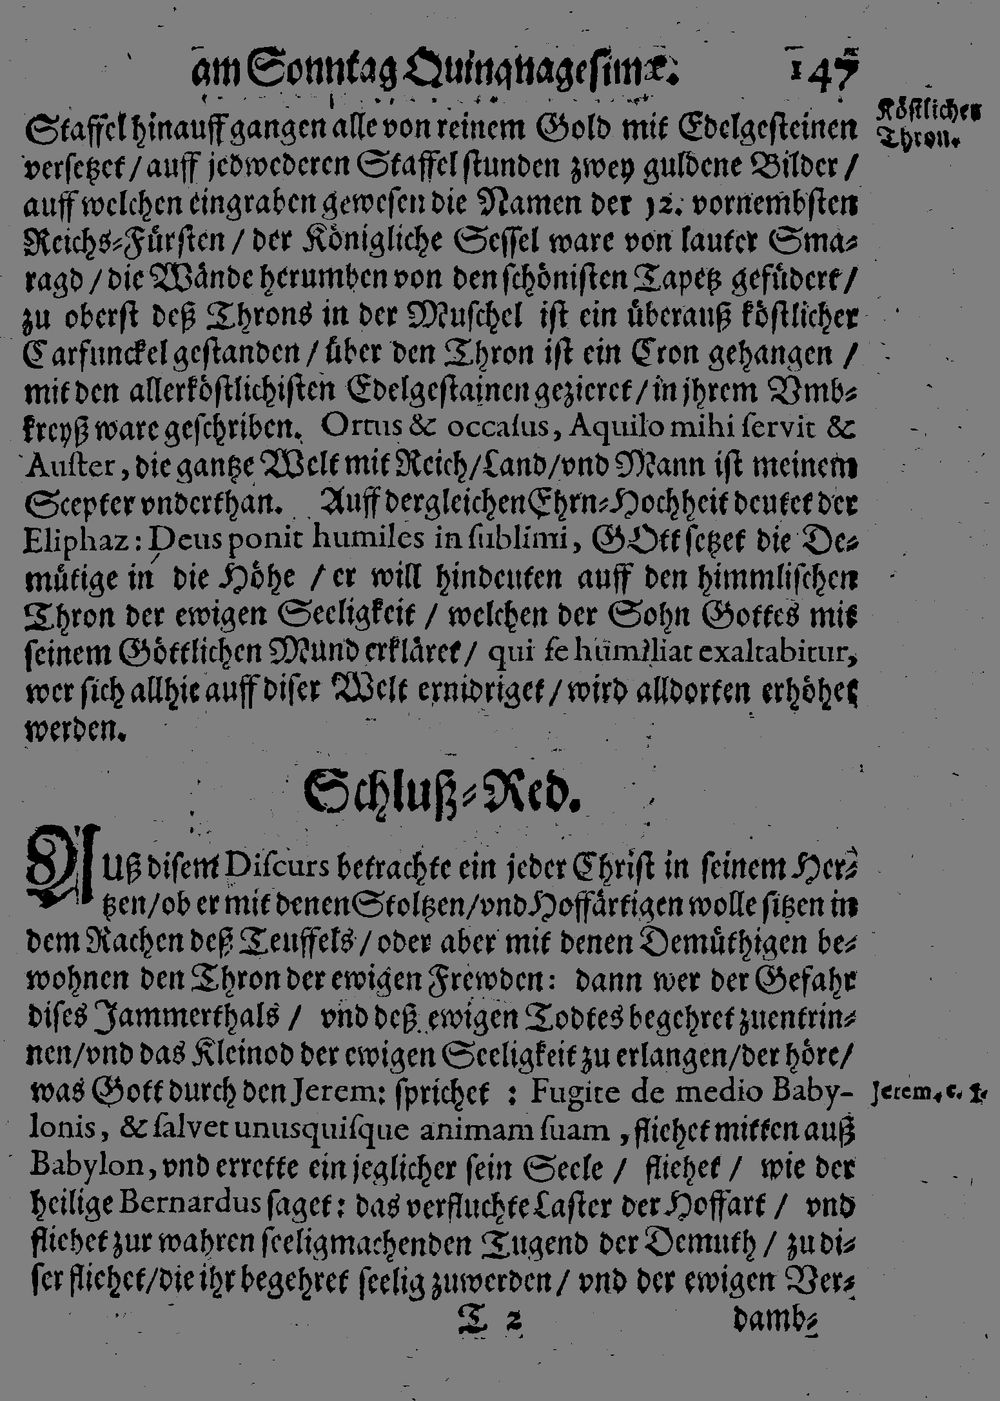 am Sonntag Quinquagesimæ. 147
Köstlicher
Thron.
Staffel hinauff gangen alle von reinem Gold mit Edelgesteinen
versetzet / auff jedwederen Staffel stunden zwey guldene Bilder /
auff welchen eingraben gewesen die Namen der 12. vornembsten
Reichs-Fürsten / der Königliche Sessel ware von lauter Sma-
ragd / die Wände herumben von den schönisten Tapetz gefüdert /
zu oberst deß Throns in der Muschel ist ein überauß köstlicher
Carfunckel gestanden / über den Thron ist ein Cron gehangen /
mit den allerköstlichisten Edelgestainen gezieret / in jhrem Vmb-
kreyß ware geschriben. Ortus & occasus, Aquilo mihi servit &
Auster, die gantze Welt mit Reich/Land/vnd Mann ist meinem
Scepter vnderthan. Auff dergleichen Ehrn-Hochheit deutet der
Eliphaz: Deus ponit humiles in sublimi, GOtt setzet die De-
mütige in die Höhe / er will hindeuten auff den himmlischen
Thron der ewigen Seeligkeit / welchen der Sohn Gottes mit
seinem Göttlichen Mund erkläret / qui se humiliat exaltabitur,
wer sich allhie auff diser Welt ernidriget / wird alldorten erhöhet
werden.
Schluß-Red.
AUß disem Discurs betrachte ein jeder Christ in seinem Her-
tzen/ob er mit denen Stoltzen/vnd Hoffärtigen wolle sitzen in
dem Rachen deß Teuffels / oder aber mit denen Demüthigen be-
wohnen den Thron der ewigen Frewden: dann wer der Gefahr
dises Jammerthals / vnd deß ewigen Todtes begehret zuentrin-
nen/vnd das Kleinod der ewigen Seeligkeit zu erlangen/der höre/
was Gott durch den Jerem: sprichet : Fugite de medio Baby-
Jerem. c. 51.
lonis, & salvet unusquisque animam suam , fliehet mitten auß
Babylon, vnd errette ein jeglicher sein Seele / fliehet / wie der
heilige Bernardus saget: das verfluchte Laster der Hoffart / vnd
fliehet zur wahren seeligmachenden Tugend der Demuth / zu di-
ser fliehet/die ihr begehret seelig zuwerden / vnd der ewigen Ver-
T 2 damb-